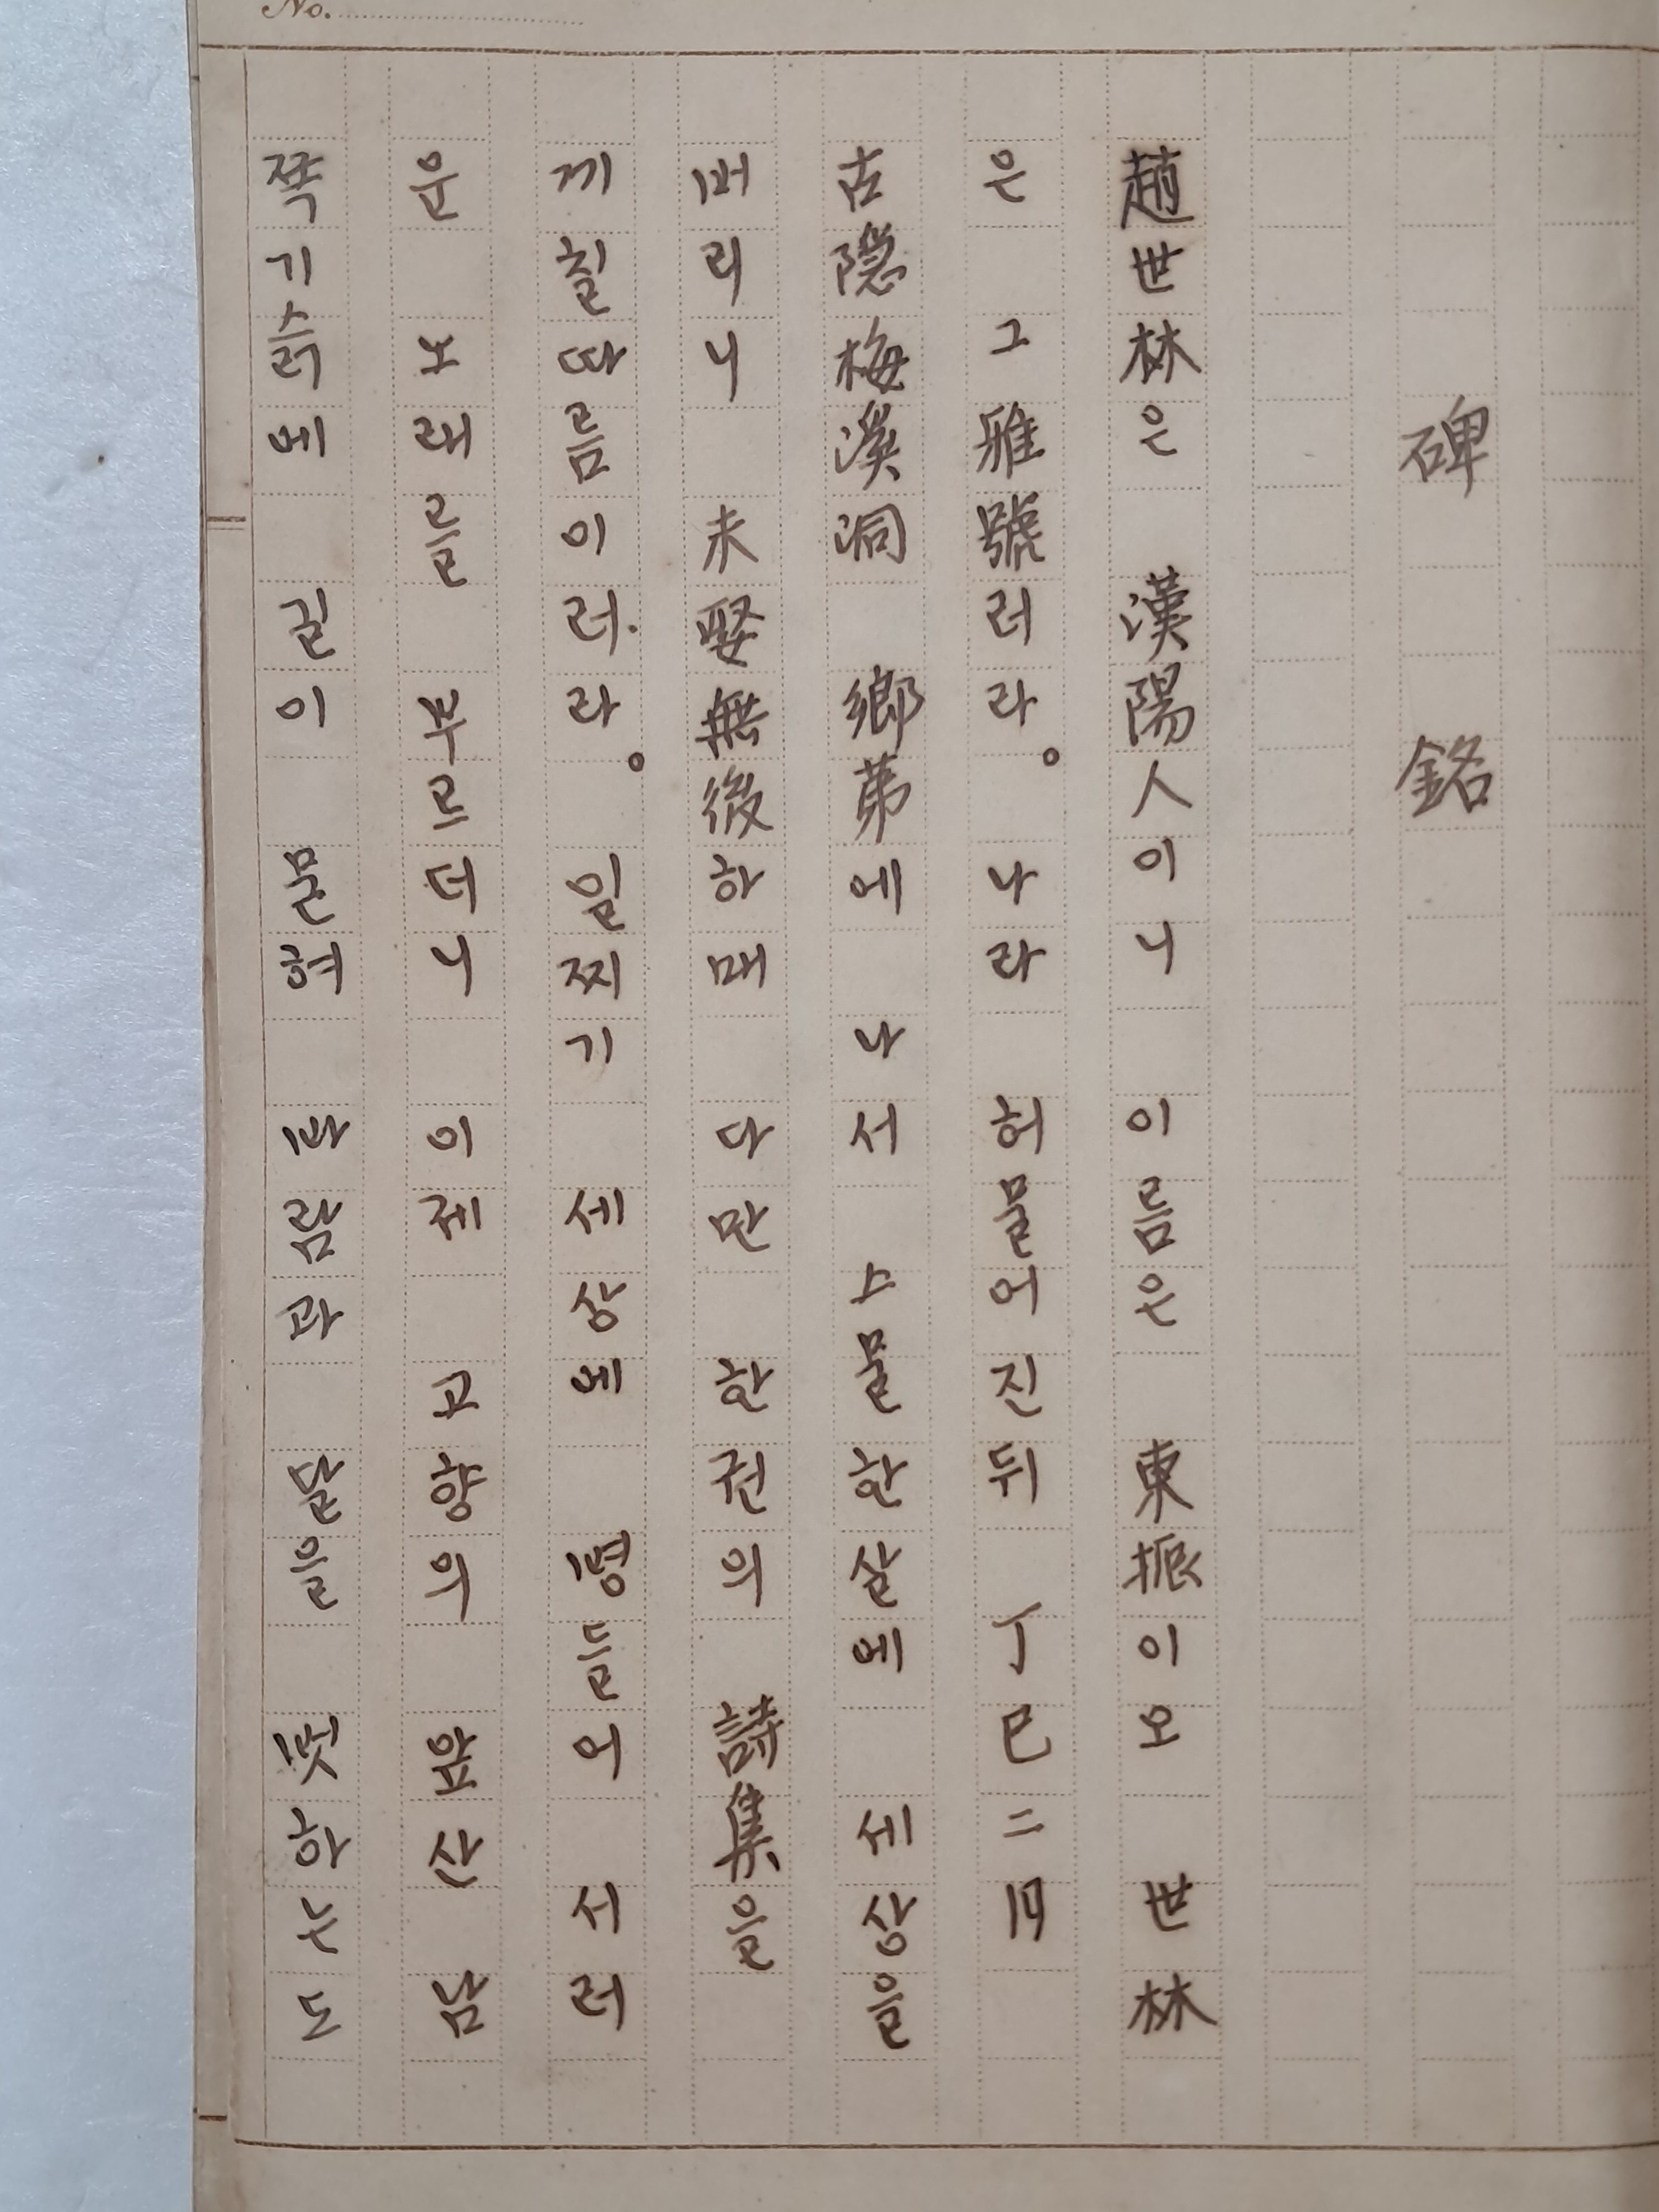 碑銘
趙世林은 漢陽人이니 이름은 東振이오 世林
은 그雅號러라。 나라 허물오진뒤 丁巳二月
古隱梅溪洞 鄕第에 나서 스물한살에 세상을
버리니 未娶無後하매 다만 한권의 詩集을
끼칠따름이러라。 일찌기 세상에 형들오 서러
운 노래를 부르더니 이제 고향의 앞산 남
쪽기슭에 길이 바람과 달을 벗하누도